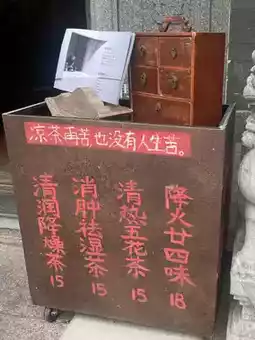 凉茶再苦,也没有人生苦。
降火廿四味
18
清热五花茶
15
消肿祛湿茶
15
清润降燥茶
15